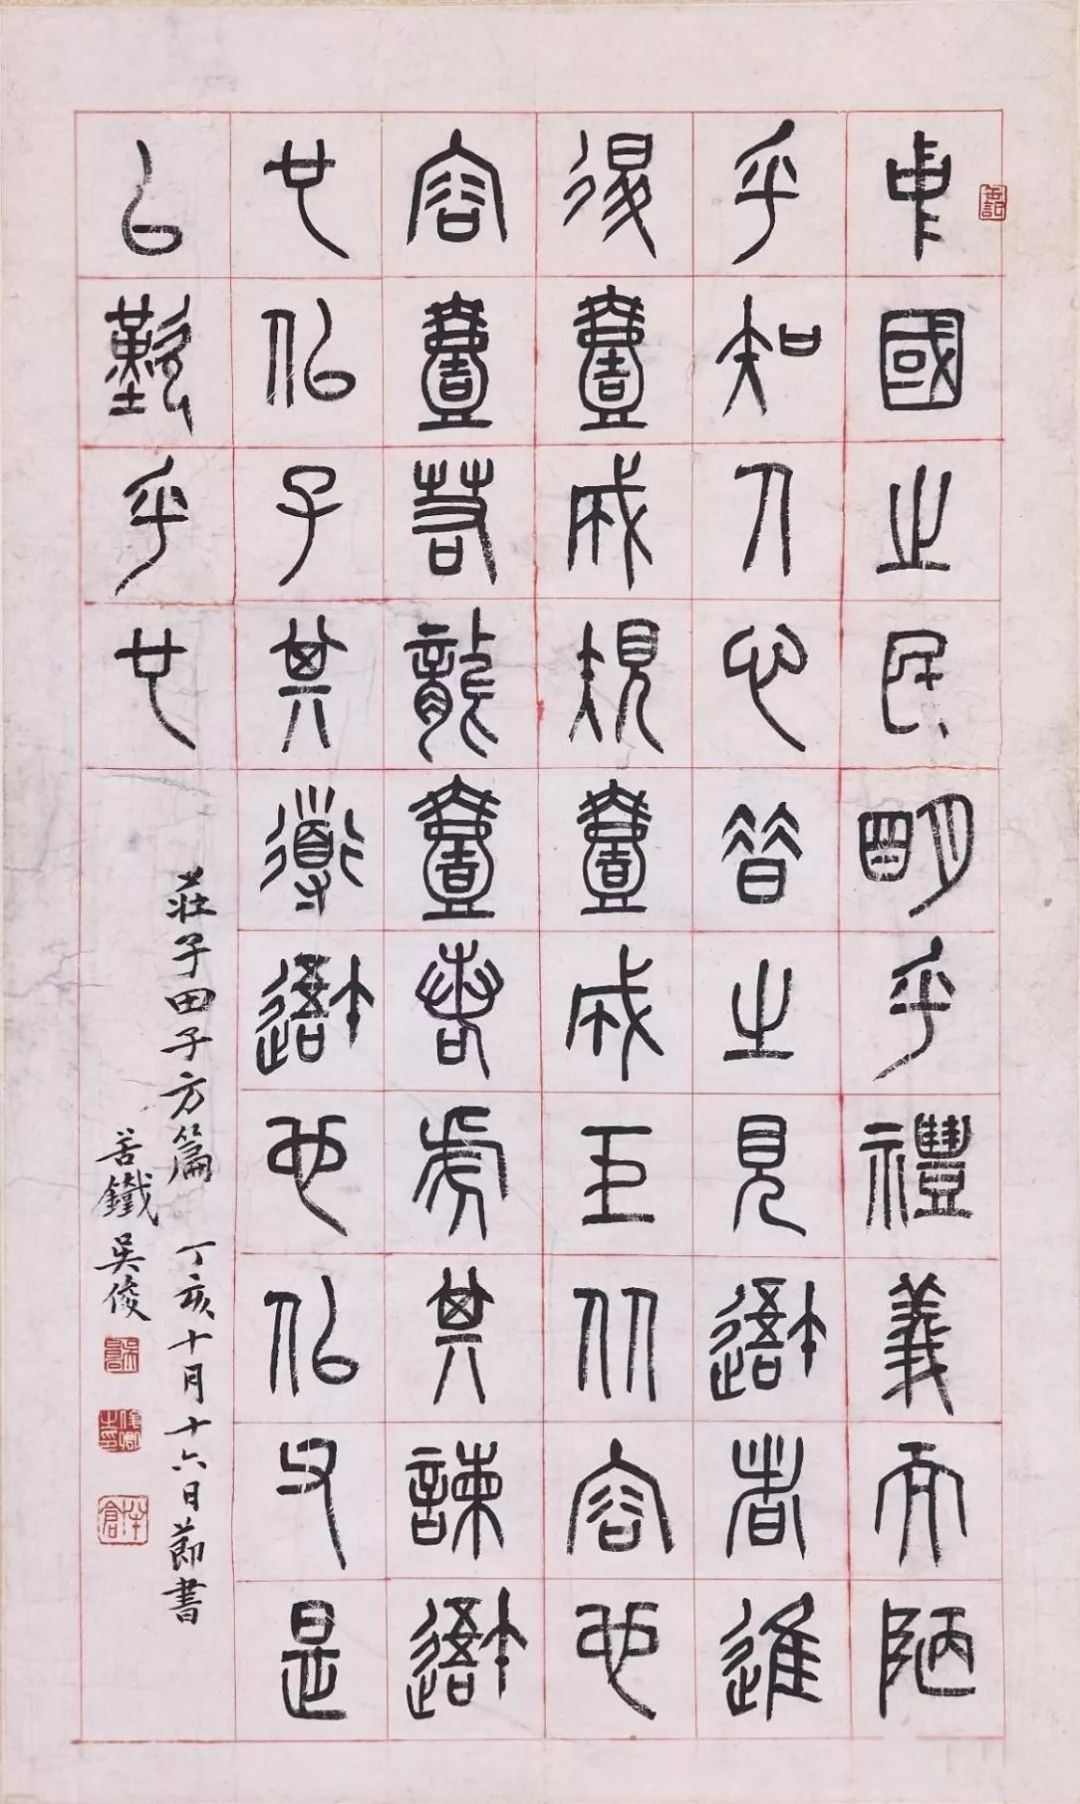 中國之民明乎禮義而陋
乎知人心昔之見吾者進
退壹成規壹成巨从容也
容壹若龍壹若虎其諫吾
也似子其道吾也似父是
以乎也
莊子田子方篇 丁亥十月十六日節書
苦鐵吳俊